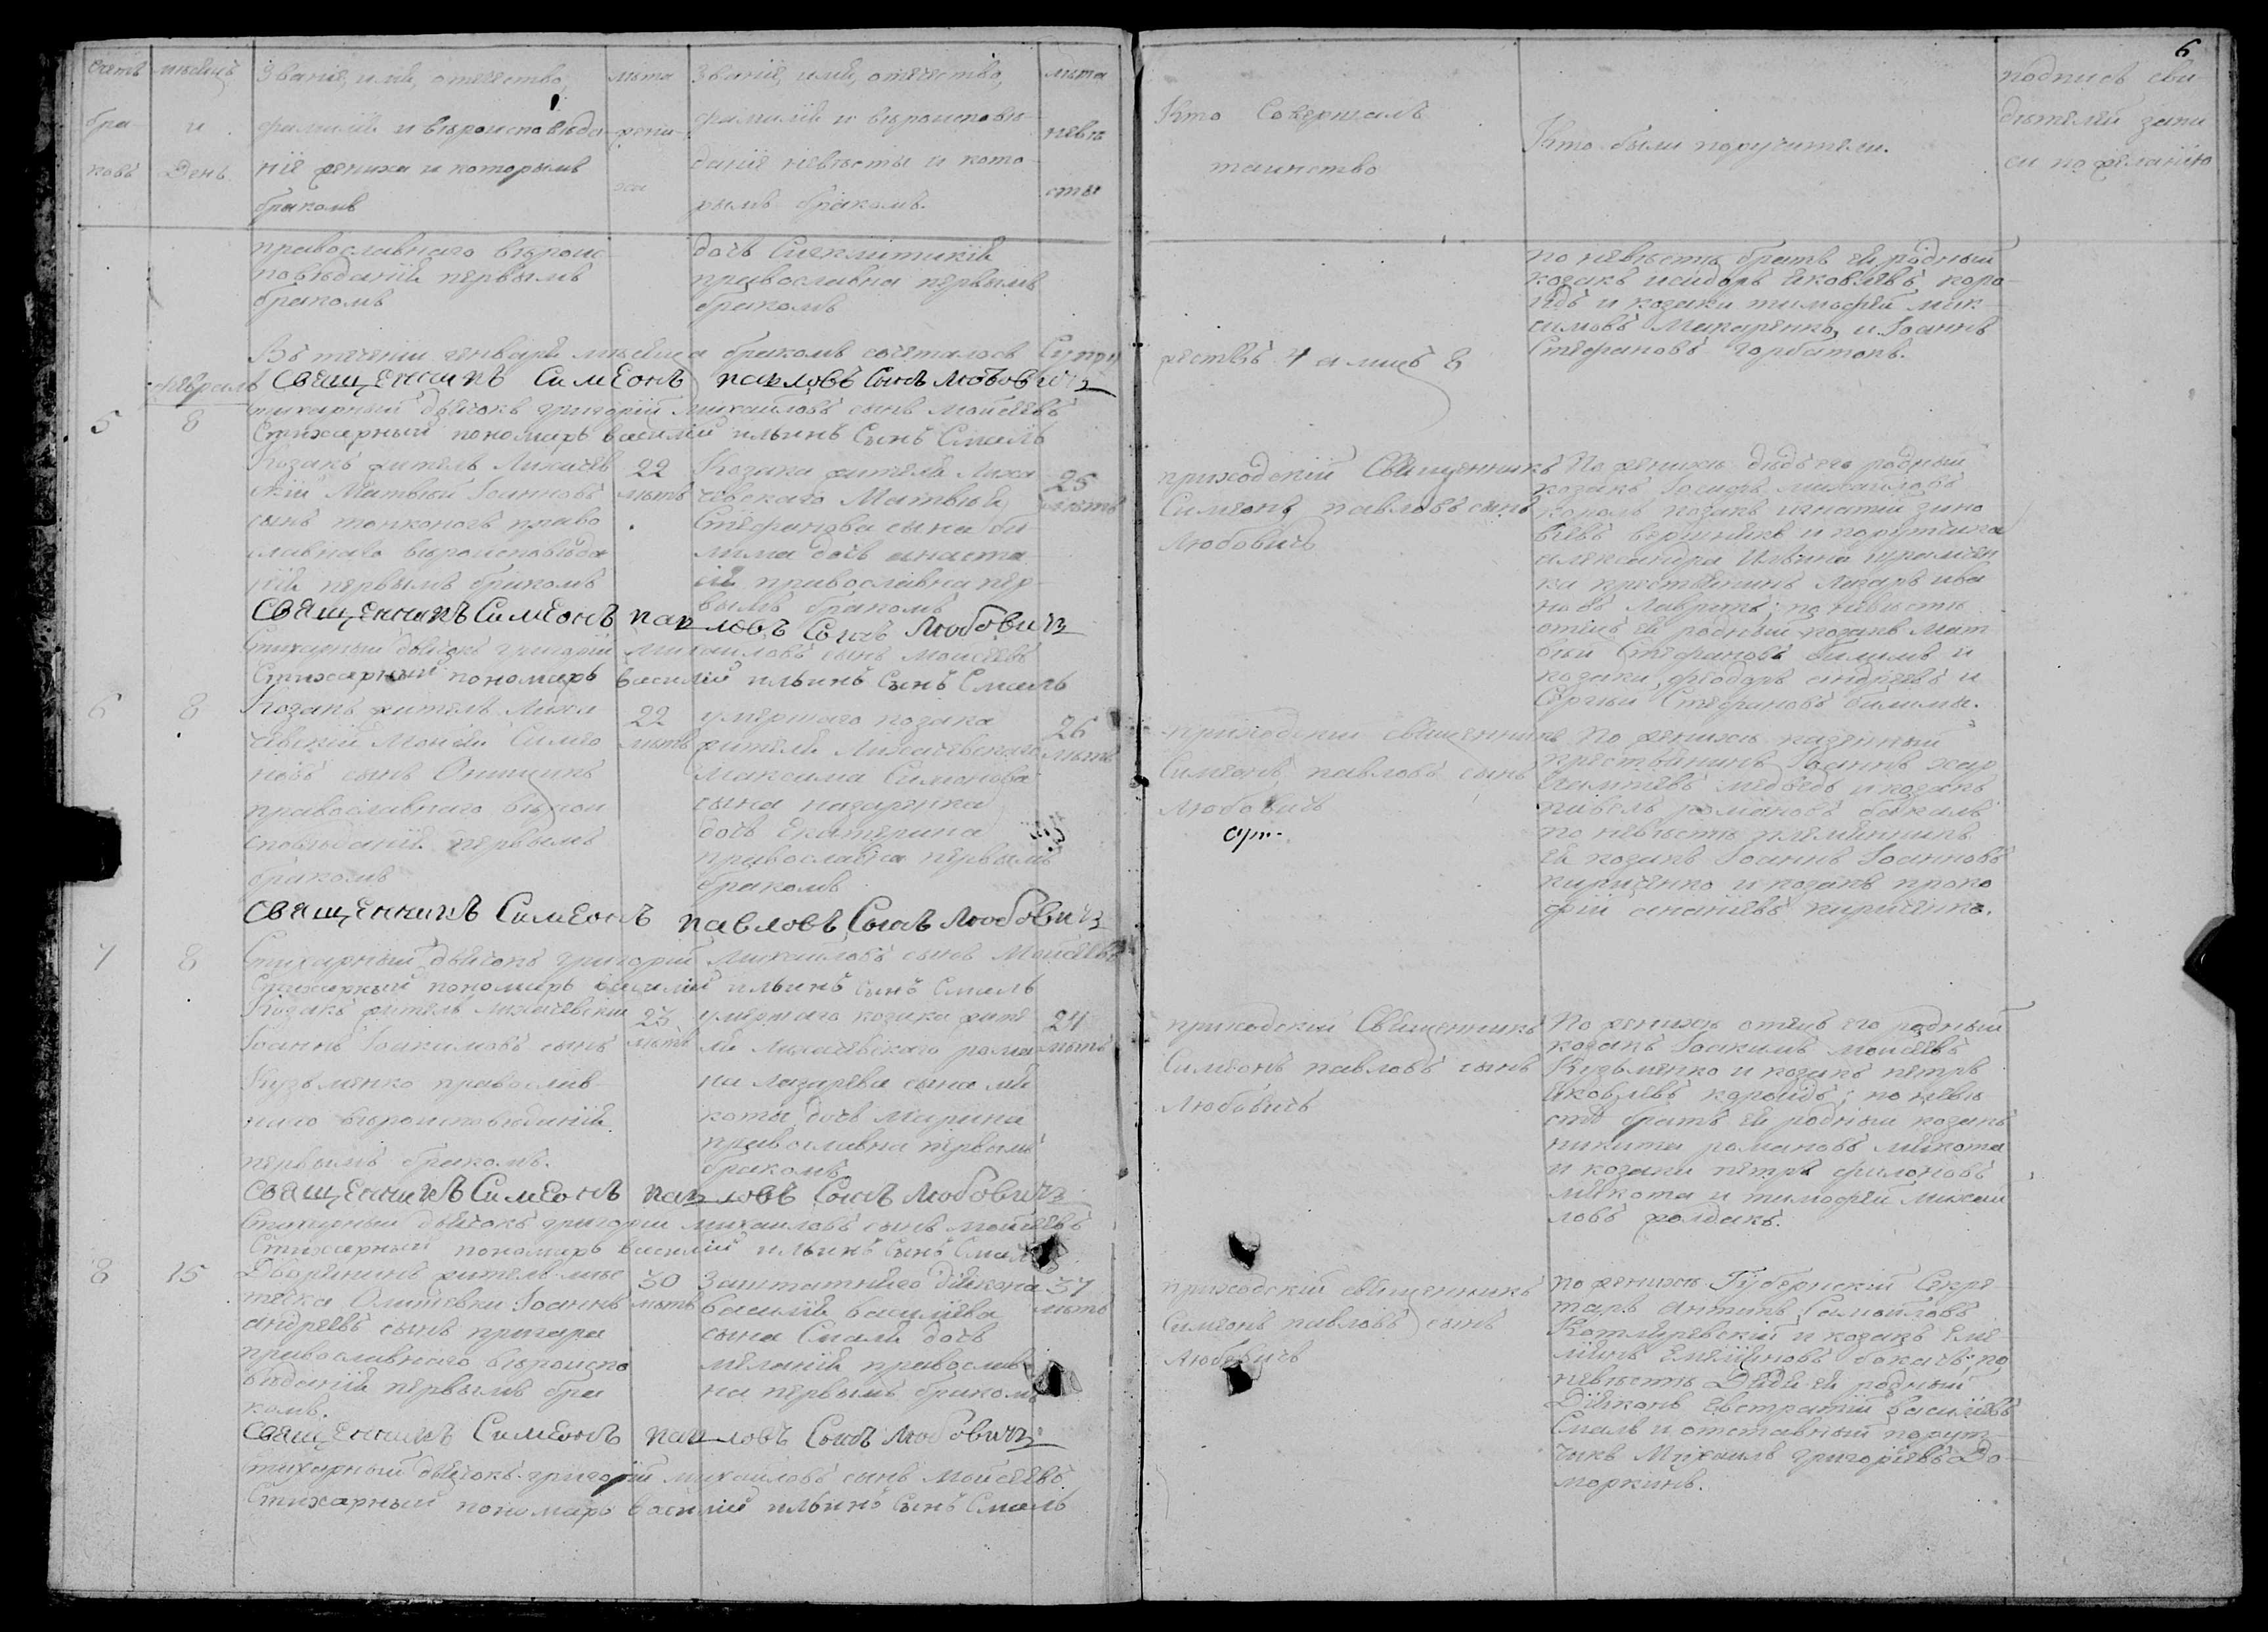 6
счетъ
бра-
ковъ
мѣсяцъ
и
День
Званіе, имя, отечество,
фамилія и вѣроисповѣда-
ніе жениха и которымъ
бракомъ
лѣта
жени-
ха
Званіе, имя, отечество,
фамилія и вѣроисповѣ-
даніе невѣсты и кото-
рымъ бракомъ.
лѣта
невѣ
сты
Кто Совершалъ
таинство
Кто были поручители.
подписъ сви-
дѣтелей запи
си по желанію
православнаго вѣроис-
повѣданія первымъ
бракомъ
дочь Сигклитикія
православна первымъ
бракомъ
по невѣстѣ братъ ей родный
козакъ исидоръ яковлевъ коро-
идъ и козаки тимофей мак-
симовъ Макаренко, и Іоаннъ
Стефановъ горбатокъ.
Въ теченіи генваря мѣсяца бракомъ сочеталось Супру
жествъ 4 а лицъ 8
Священникъ Симеонъ павловъ Сынъ Любовичъ
Февраль
стихарный дьячокъ григорій михаиловъ сынъ Моисеевъ
Стихарный пономаръ василій ильинъ Сынъ Смаль
5
8
Козакъ житель Лихачев
скій Матвѣй Іоанновъ
сынъ тонконогъ право
славнаго вѣроисповѣда
нія первымъ бракомъ
22
лѣтъ
Козака жителя Лиха
чевскаго Матвѣя
Стефанова сына би
лыма дочь анаста
ія православна пер-
вымъ бракомъ
25
лѣтъ
приходскій Священникъ
Симеонъ павловъ сынъ
Любовичъ
По женихѣ дядъ его родный
козакъ Іосифъ михайловъ
король козакъ игнатій зино
вѣевъ вершникъ и поручика
александра Ильина
крестьянинъ Лазаръ ива
новъ Лавринъ; по невѣстѣ
отецъ ей родный козакъ Мат
ѳѣй Стефановъ билымъ и
козаки, феодоръ андреевъ и
Сергѣй Стефановъ билымы.
Священникъ Симеонъ павловъ Сынъ Любовичъ
Стихарный дьячокъ григорій михаиловъ сынъ Моисеевъ
Стихарный пономаръ василій ильинъ Сынъ Смаль
6
8
Козакъ житель Лиха
чевскій Моисей Симео
новъ сынъ Онищикъ
православнаго вѣрои
сповѣданія первымъ
бракомъ
22
лѣтъ
умершаго козака
жителя Лихачевскаго
Максима Симонова
сына назаренка
дочь Екатерина
православна первымъ
бракомъ
26
лѣтъ
приходскій священникъ
Симеонъ павловъ сынъ
Любовичъ
По женихѣ казенный
крестьянинъ Іоаннъ хар
лампіевъ медведъ и козакъ
павелъ романовъ бакалъ
по невѣстѣ племянникъ
ей козакъ Іоаннъ Іоанновъ
кириченко и козакъ проко
фій ананіевъ кириченко.
Священникъ Симеонъ павловъ Сынъ Любовичъ
Стихарный дьячокъ григорій михаиловъ сынъ Моисеевъ
Стихарный пономаръ василій ильинъ сынъ Смаль
7
8
Козакъ житель лихачевскій
Іоаннъ Іоакимовъ сынъ
Кузьменко православ-
наго вѣроисповѣданія
первымъ бракомъ.
23
лѣтъ
умершаго козака жите
ля Лихачевскаго рома
на Лазарева сына мя
коты дочь Марина
православна первымъ
бракомъ
24
лѣтъ
приходскій Священникъ
Симеонъ павловъ сынъ
Любовичъ
По женихѣ отецъ его родный
козакъ Іоакимъ моисеевъ
Кузьменко и козакъ петръ
яковлевъ короидъ; по невѣ
стѣ братъ ей родный козакъ
никита романовъ мякота
и козаки петръ филоновъ
мякота и тимофей михаи
ловъ
Священникъ Симеонъ павловъ Сынъ Любовичъ
Стихарный дьячокъ григорій михаиловъ сынъ Моисеевъ
Стихарный пономаръ василій ильинъ Сынъ Смаль
8
15
Дворянинъ житель мѣс
течка Олишевки Іоаннъ
андреевъ сынъ пригара
православнаго вѣроиспо
вѣданія первымъ бра
комъ.
30
лѣтъ
Заштатнаго діякона
василія василіева
сына Смаля дочь
меланія православ
на первымъ бракомъ
37
лѣтъ
приходскій священникъ
Симеонъ павловъ сынъ
Любовичъ
по женихѣ Губернскій Секре-
таръ антипъ Самойловъ
Котляревскій и козакъ Еме
ліянъ Емеліяновъ бокачъ; по
невѣстѣ Дядя ей родный
Діяконъ Евстратій василіевъ
Смаль и отставный порут-
чикъ Михаилъ григоріевъ До-
моркинъ.
Священникъ Симеонъ павловъ Сынъ Любовичъ
стихарный дьячокъ григорій михаиловъ сынъ Моисеевъ
Стихарный пономаръ василій ильинъ Сынъ Смаль